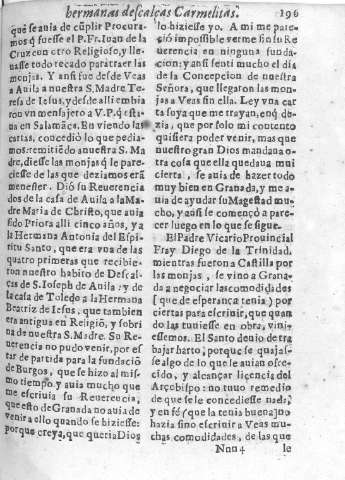 hermanas descalças Carmelitas. 196
que se auia de cūplir Procura-
mos q̃ fuesse el P. Fr. Iuan de la
Cruz con otro Religioso, y lle-
uasse todo recado para traer las
monjas. Y ansi fue desde Veas
a Auila a nuestra S. Madre Te-
resa de Iesus, y desde alli embia
ron vn mensajero a V. P. q̃ esta-
ua en Salamāca. En viendo las
cartas, concedio lo que pedia-
mos: remitiēdo a nuestra S. Ma
dre, diesse las monjas q̃ le pare-
ciesse de las que deziamos erā
menester. Diō su Reuerencia
dos de la casa de Auila, a la Ma-
dre Maria de Christo, que auia
sido Priora alli cinco años, y a
la Hermana Antonia del Espi-
ritu Santo, que era vna de las
quatro primeras que recibie-
ron nuestro habito de Descal-
ças de S. Ioseph de Auila: y de
la casa de Toledo a la Hermana
Beatriz de Iesus, que tambien
era antigua en Religiō, y sobri
na de nuestra S. Madre. Su Re-
uerencia no pudo venir, por es-
tar de partida para la fundaciō
de Burgos, que se hizo al mis-
mo tiempo. y auia mucho que
me escriuia su Reuerencia,
que esto de Granada no auia de
venir a ello quando se hiziesse:
porque creya, que queria Dios
lo hiziesse yo. A mi me pare-
ciò impossible verme sin su Re
uerencia en ninguna funda-
cion: y ansi senti mucho el dia
de la Concepcion de nuestra
Señora, que llegaron las mon-
jas a Veas sin ella. Ley vna car
ta suya que me trayan, enq̃ de-
zia, que por solo mi contento
quisiera poder venir, mas que
nuestro gran Dios mandaua o-
tra cosa que ella quedaua mui
cierta, se auia de hazer todo
muy bien en Granada, y me a-
uia de ayudar su Magestad mu-
cho, y ansi se començò a pare-
cer luego en lo que se sigue.
El Padre Vicario Prouincial
Fray Diego de la Trinidad,
mientras fueron a Castilla por
las monjas, se vino a Grana-
da a negociar las comodidades
(que de esperança tenia) por
ciertas para escriuir, que quan
do las tuuiesse en obra, vini-
essemos. El Santo deuio de tra
bajar harto, porque se quajas-
se algo de lo que le auian ofre-
cido, y alcançar licencia del
Arçobispo: no tuuo remedio
de que se le concediesse nada,
y en fè (que la tenia buena) no
hazia sino escriuir a Veas mu-
chas comodidades, de las que
Nnn 4 le